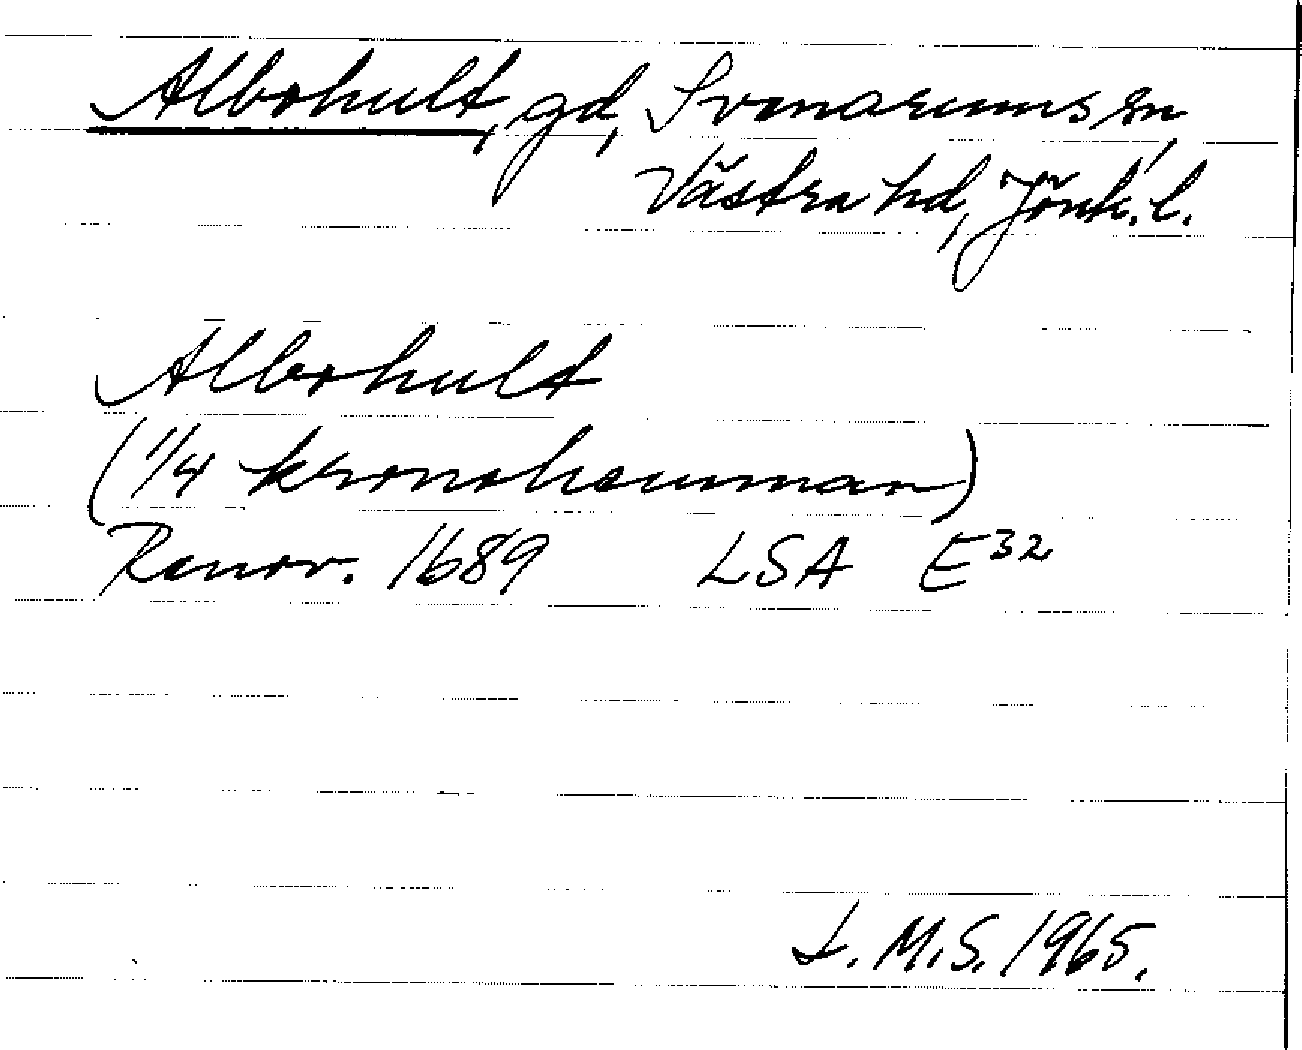 Albohult, gd, Svenarums sn,
Västra hd, Jönk. l.
Albohult
(1/4 kronohemman)
Renov. 1689 LSA E32
I. M.S. 1965.